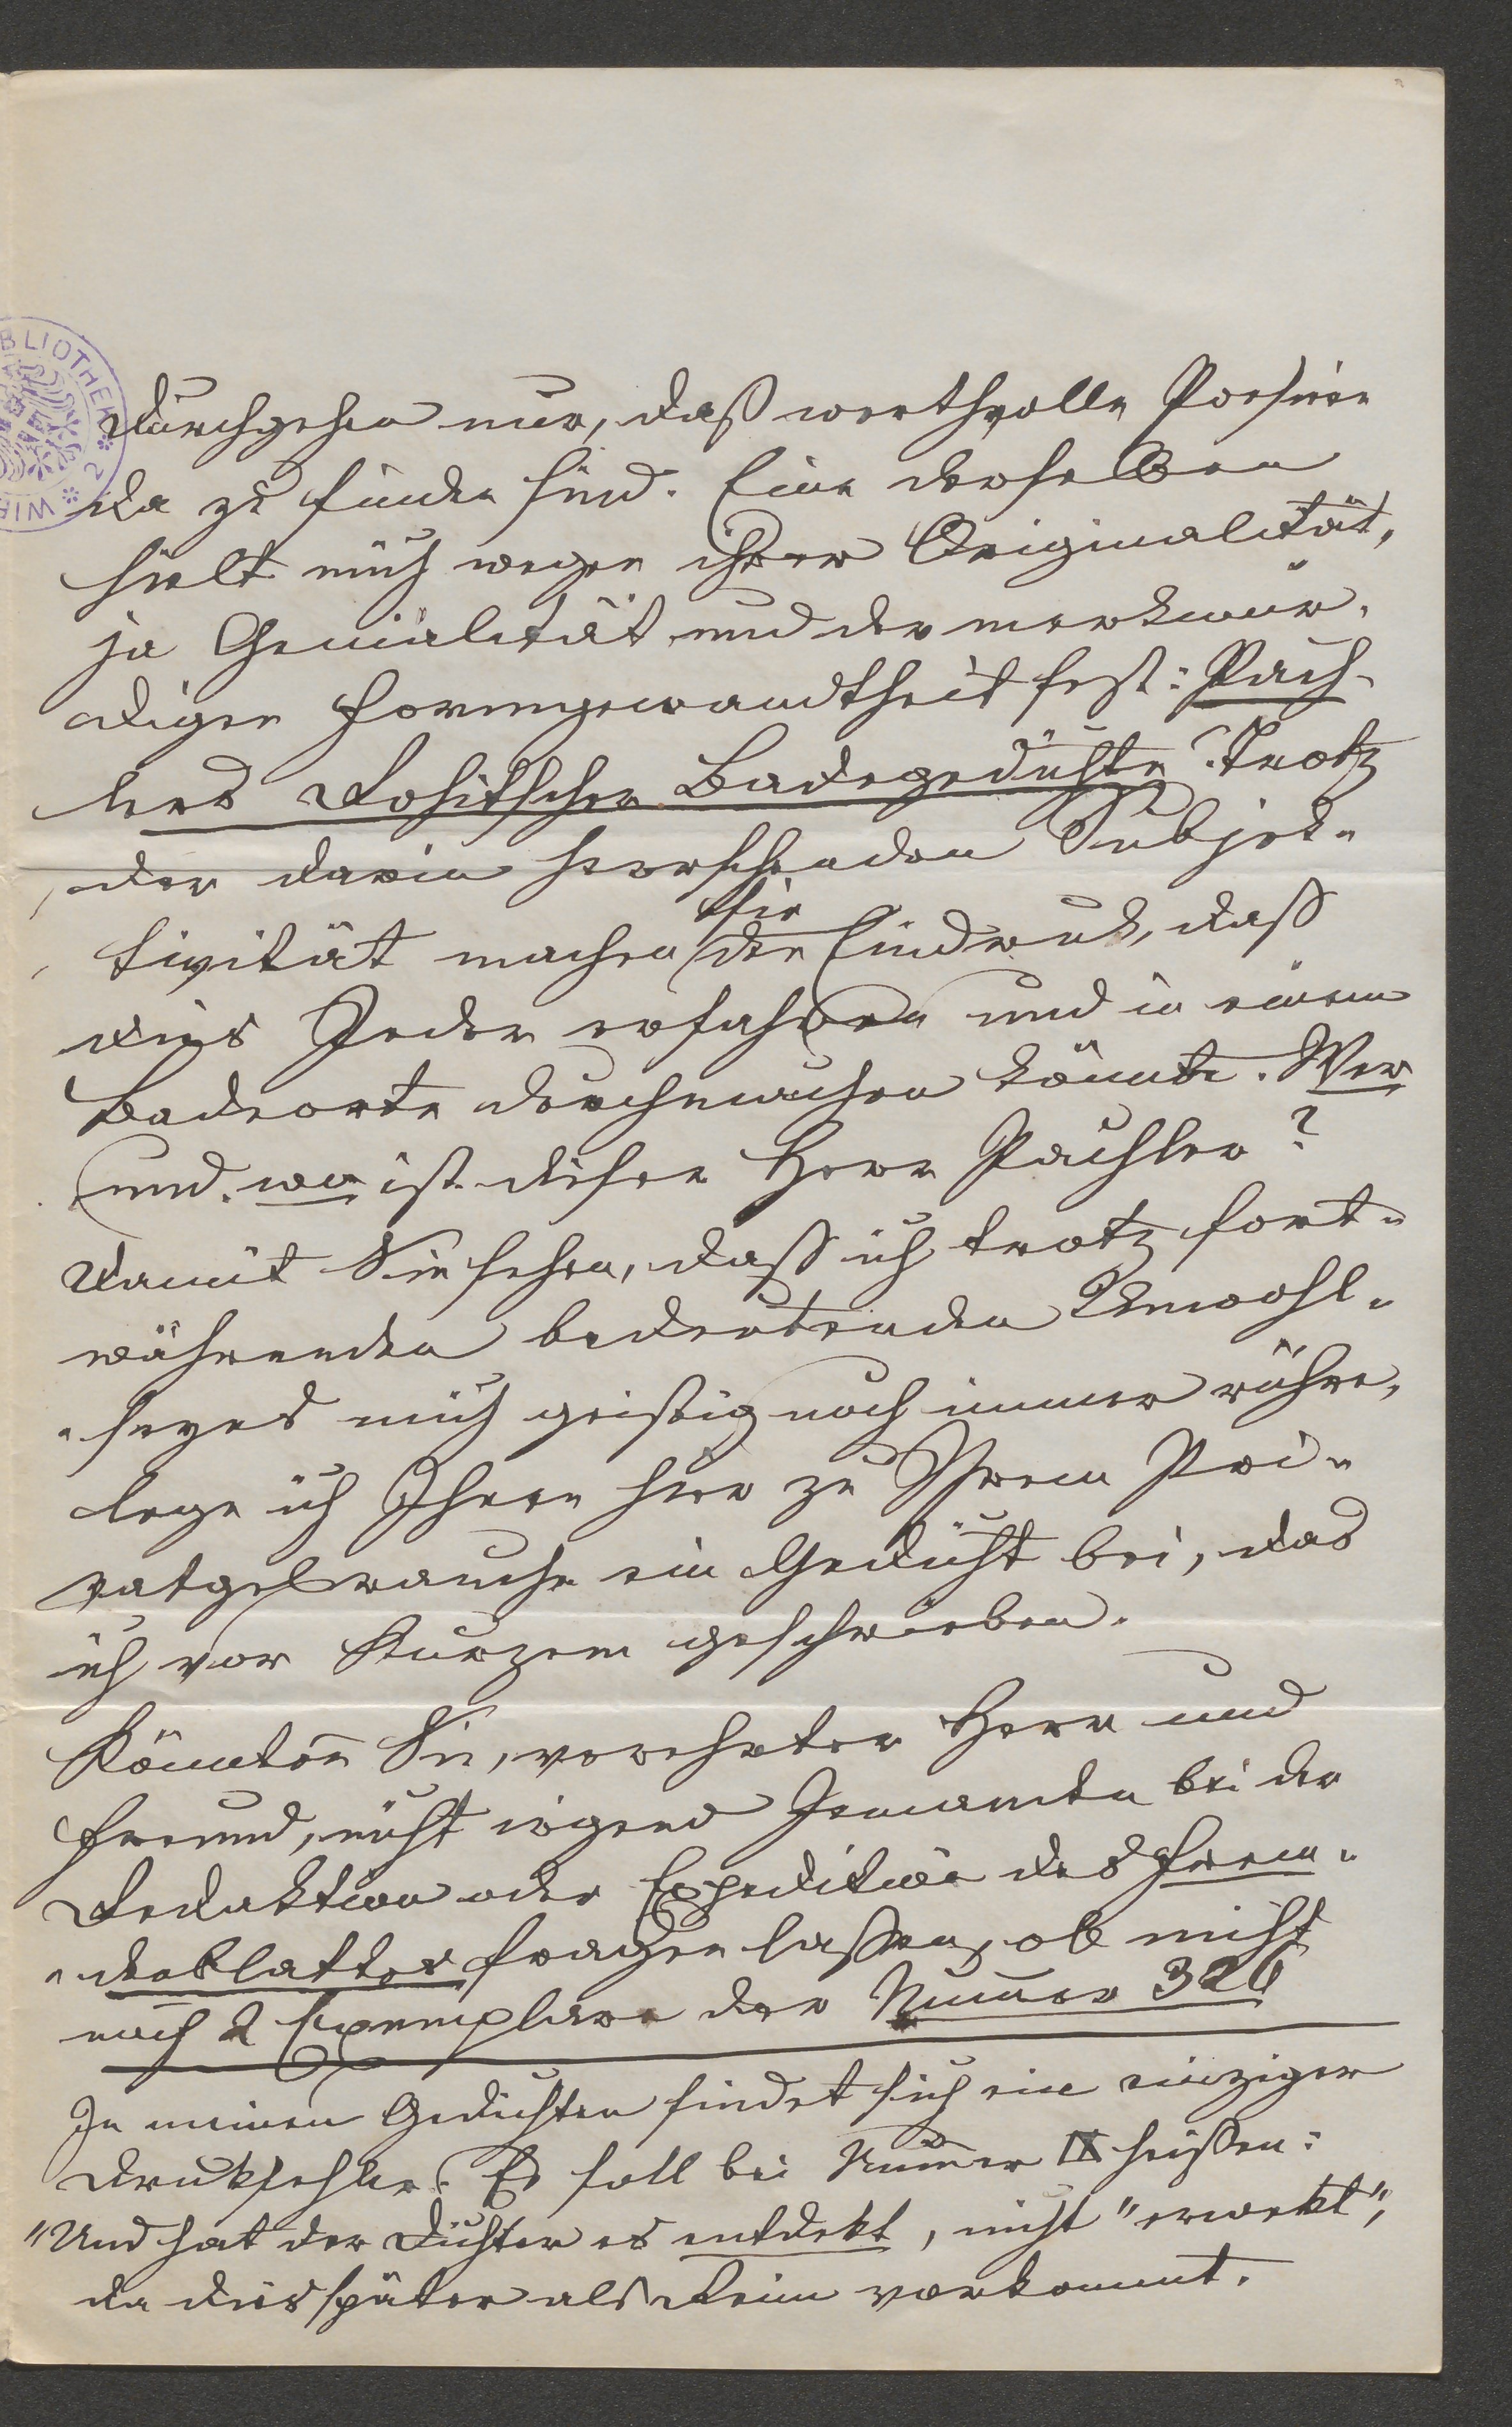 BLIOTHEK
2
WIE
Durchgehen nur, daß werthvolle Poesieen
da zu finden sind. Eine derselben
hielt mich wegen ihrer Originalität,
ja Genialität und der merkwür-
digen Formgewandtheit fest: Pach-
lers Rohitscher Badegedichte. Trotz
der darin herrschenden Subjek-
tivität machen sie den Eindruck, daß
dies Jeder erfahren und in einem
Badeorte durchmachen könnte. Wer
und wo ist dieser Herr Pachler?
Damit Sie sehen, daß ich trotz fort-
währenden bedeutenden Unwohl-
-seyns mich geistig noch immer rühre,
lege ich Ihnen hier zu Ihrem Pri-
vatgebrauche ein Gedicht bei, das
ich vor Kurzem geschrieben.
Könnten Sie, verehrter Herr und
Freund, nicht irgend Jemanden bei der
Redaktion oder Expedition des Frem-
-denblattes fragen lassen, ob nicht
noch 2 Exemplare der Numer 326
In meinen Gedichten findet sich ein einziger
Druckfehler. Es soll bei Numer IX heißen:
"Und hat der Dichter es entdekt, nicht "erwekt",
da dies später als Reim vorkommt.